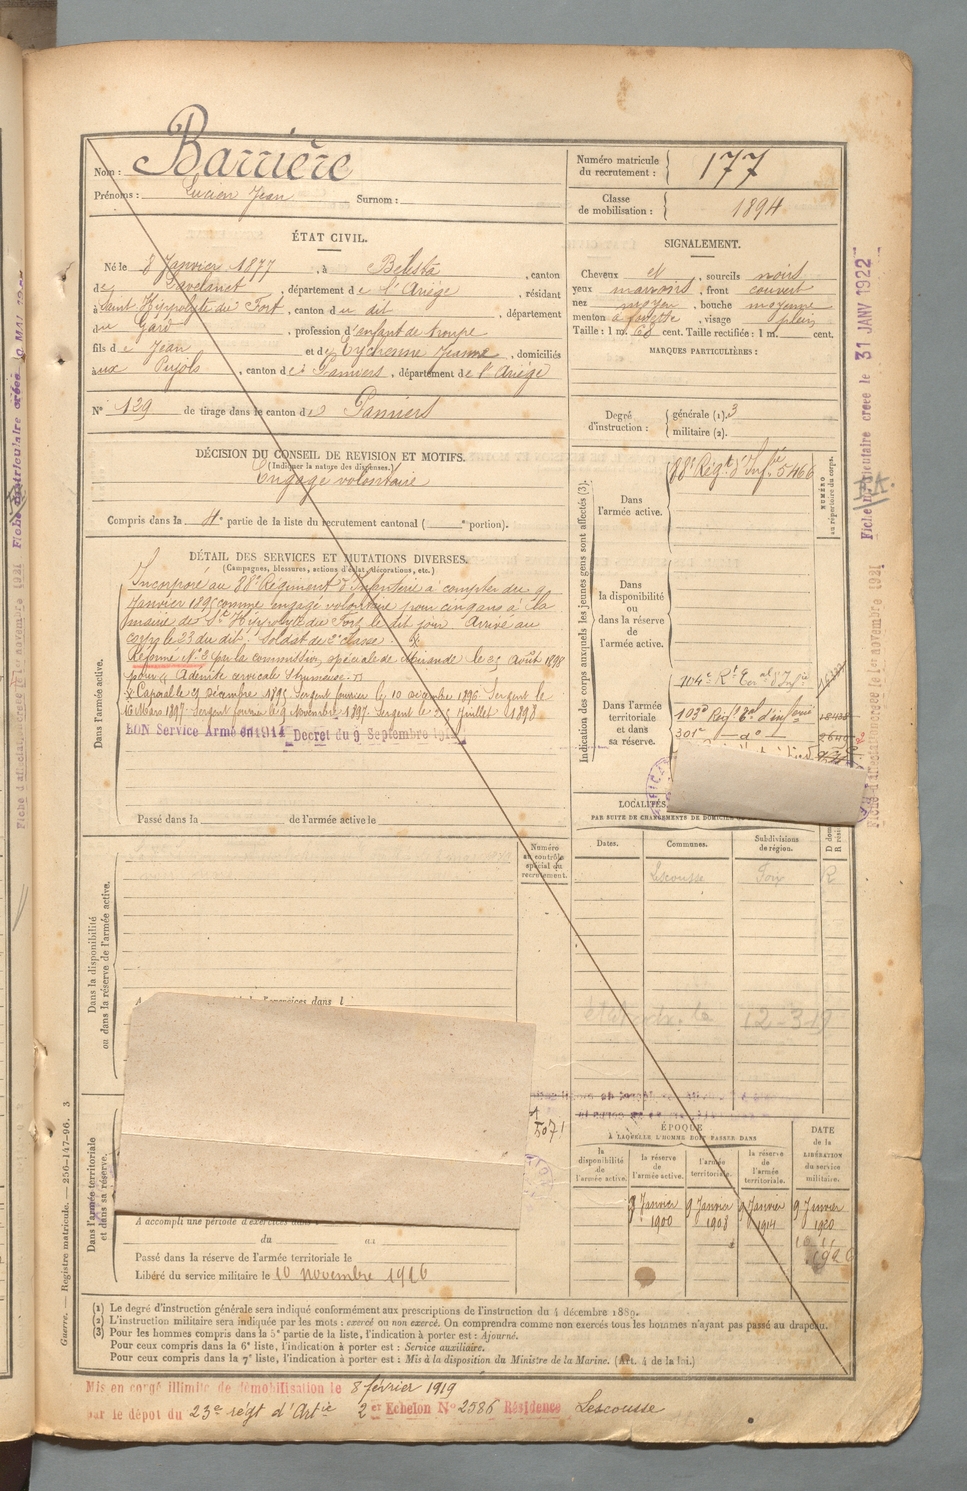 Nom : Barrière
Prénoms : Lucien Jean Surnom :
Numéro matricule du recrutement : 177
Classe de mobilisation : 1894
ÉTAT CIVIL.
Né le 8 Janvier 1877, à Bélesta, canton
de Lavelanet, département de l'Ariège, résidant
à Saint Hippolyte du Fort, canton du dit, département
du Gard, profession d'enfant de troupe
fils de Jean et de Eychenne Jeanne, domiciliés
aux Pujols, canton de Pamiers, département de l'Ariège
N° 129 de tirage dans le canton de Pamiers
SIGNALEMENT.
Cheveux et, sourcils noirs
yeux marrons, front couvert
nez moyen, bouche moyenne
menton à fossette, visage plein
Taille : 1 m. 68 cent. Taille rectifiée : 1 m. cent.
MARQUES PARTICULIÈRES :
Degré d'instruction : générale (1). 3
militaire (2).
DÉCISION DU CONSEIL DE REVISION ET MOTIFS.
(Indiquer la nature des dispenses.)
Engagé volontaire
Compris dans la 4e partie de la liste du recrutement cantonal ( e portion).
DÉTAIL DES SERVICES ET MUTATIONS DIVERSES.
(Campagnes, blessures, actions d'éclat, décorations, etc.)
Incorporé au 88e Régiment d'Infanterie à compter du 9
Janvier 1895 comme engagé volontaire pour cinq ans à la
mairie de St Hippolyte du Fort le dit jour. Arrivé au
corps le 23 du dit. Soldat de 2e classe.
Réformé N° 2 par la commission spéciale de Mirande le 25 Août 1898
pour " Adénite cervicale
Caporal le 21 Décembre 1895 Sergent fourrier le 10 Décembre 1896 Sergent le
16 Mars 1897 Sergent fourrier le 9 Novembre 1897. Sergent le 25 Juillet 1898
BON Service Armé en 1914 Decret du 9 Septembre 1914
Passé dans la de l'armée active le
Dans l'armée active.
Indication des corps auxquels les jeunes gens sont affectés (3).
Dans l'armée active.
88e Régt d'Infie 5466
NUMÉRO au répertoire du corps.
Dans la disponibilité ou dans la réserve de l'armée active.
Dans l'armée territoriale et dans sa réserve.
104e Rt Ter al d'Infie
103e Régt Tal d'infanterie
301e do
LOCALITÉS
PAR SUITE DE CHANGEMENTS DE DOMICILE
Dates. Communes. Subdivisions de région.
Lescousse Foix R
12-3-19
Dans la disponibilité ou dans la réserve de l'armée active.
Numéro au contrôle spécial du recrutement.
5071
ÉPOQUE
À LAQUELLE L'HOMME DOIT PASSER DANS
la disponibilité de l'armée active.
la réserve de l'armée active.
l'armée territoriale.
la réserve de l'armée territoriale.
DATE de la LIBÉRATION du service militaire.
9 Janvier 1900
9 Janvier 1908
9 Janvier 1914
9 Janvier 1920
Dans l'armée territoriale et dans sa réserve.
A accompli une période d'exercices dans l
du au
Passé dans la réserve de l'armée territoriale le
Libéré du service militaire le 10 novembre 1926
(1) Le degré d'instruction générale sera indiqué conformément aux prescriptions de l'instruction du 4 décembre 1889.
(2) L'instruction militaire sera indiquée par les mots : exercé ou non exercé. On comprendra comme non exercés tous les hommes n'ayant pas passé au drapeau.
(3) Pour les hommes compris dans la 5e partie de la liste, l'indication à porter est : Ajourné.
Pour ceux compris dans la 6e liste, l'indication à porter est : Service auxiliaire.
Pour ceux compris dans la 7e liste, l'indication à porter est : Mis à la disposition du Ministre de la Marine. (Art. 4 de la loi.)
Guerre. — Registre matricule. — 256-147-96. 3
Mis en congé illimité de démobilisation le 8 février 1919
par le dépôt du 23e régt d'Artie 2er Echelon N° 2586 Résidence Lescousse
Fiche matriculaire créée le 31 JANV 1922
Fiche d'affectation créée le 1er novembre 1921